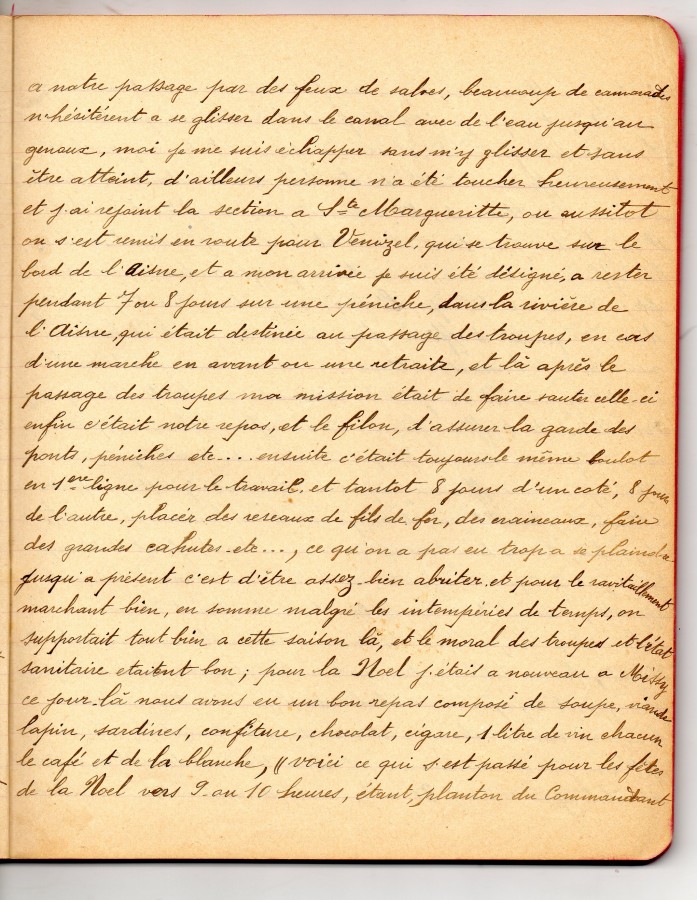 a notre passage par des feux de salves, beaucoup de camarades
n'hésitèrent a se glisser dans le canal avec de l'eau jusqu'au
genoux, moi je me suis échapper sans m'y glisser et sans
être atteint, d'ailleurs personne n'a été toucher heureusement
et j'ai rejoint la section a Ste Margueritte, ou aussitot
on s'est remis en route pour Venizel, qui se trouve sur le
bord de l'Aisne, et a mon arrivée je suis été désigné, a rester
pendant 7 ou 8 jours sur une péniche, dans la rivière de
l'Aisne, qui était destinée au passage des troupes, en cas
d'une marche en avant ou une retraite, et là après le
passage des troupes ma mission était de faire sauter celle-ci
enfin c'était notre repos, et le filon, d'assurer la garde des
ponts, péniches etc.... ensuite c'était toujours le même boulot
en 1ere ligne pour le travail, et tantot 8 jours d'un coté, 8 jours
de l'autre, placer des reseaux de fils de fer, des craineaux, faire
des grandes cahutes etc..., ce qu'on a pas eu trop a se plaindre
jusqu'a présent c'est d'être assez bien abriter, et pour le ravitaillement
marchant bien, en somme malgré les intempéries de temps, on
supportait tout bien a cette saison là, et le moral des troupes et l'état
sanitaire etaitent bon ; pour la Noel j'étais a nouveau a Missy
ce jour-là nous avons eu un bon repas composé de soupe, viande
lapin, sardines, confiture, chocolat, cigare, 1 litre de vin chacun
le café et de la blanche, // voici ce qui s'est passé pour les fêtes
de la Noel vers 9 ou 10 heures, étant, planton du Commandant